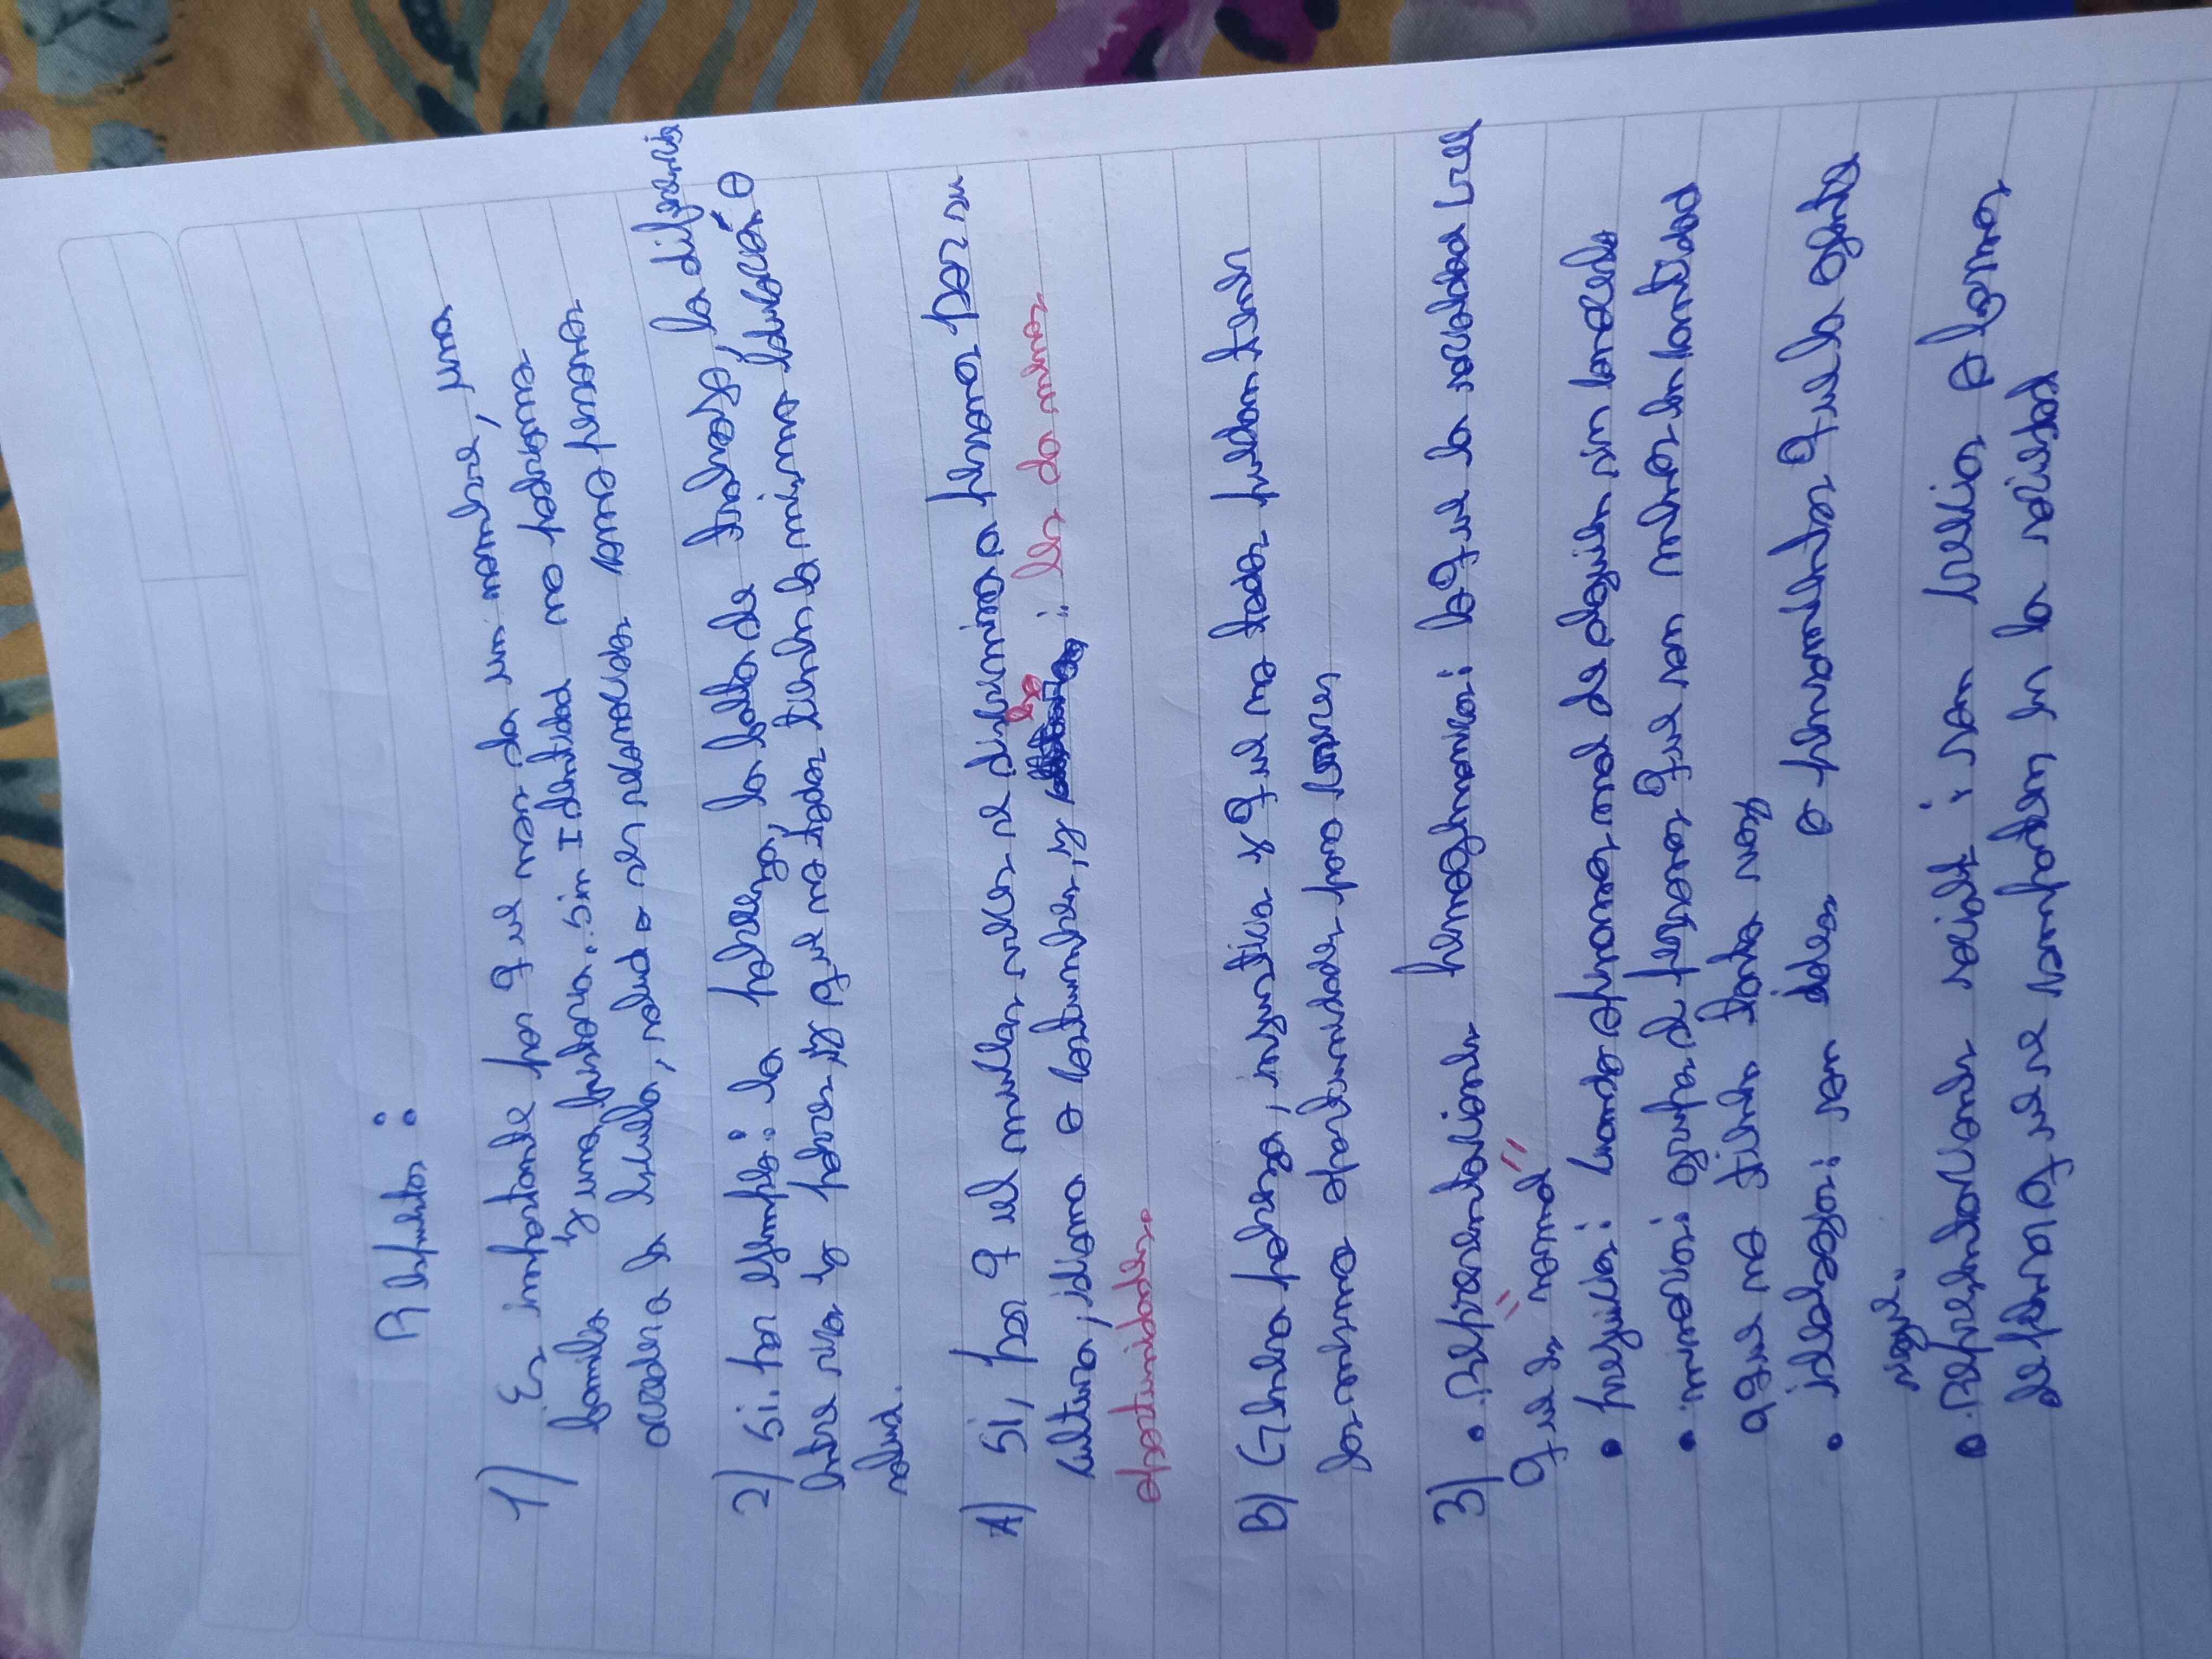 Respuestas:
1) Es importante por q se nos da un nombre, una
familia y una historia; sin Identidad no podemos
acceder a la escuela, salud o ser reconocidos como personas.
2) Si. por ejemplo: la pobreza, la falta de trabajo, la diferencia
entre ricos y pobres y que no todos tienen la misma educación o
salud.
A) Si, por q en muchos casos se discrimina a personas por su
cultura, idioma o costumbres, y no se le da muchas
oportunidades.
B) Genera pobreza, injusticia y q no todos podamos tener
las mismas oportunidades para crecer
3) • Representaciones hegemónicas: lo que la sociedad cree
que es "normal"
• prejuicios: cuando opinamos mal de alguien sin conocerlo
• minorías: grupos de personas que son menos en cantidad
o que no tienen tanta voz
• ideologías: son ideas o pensamientos que la gente
sigue.
• Representaciones sociales: son ideas o formas
de pensar que se comparten en la sociedad